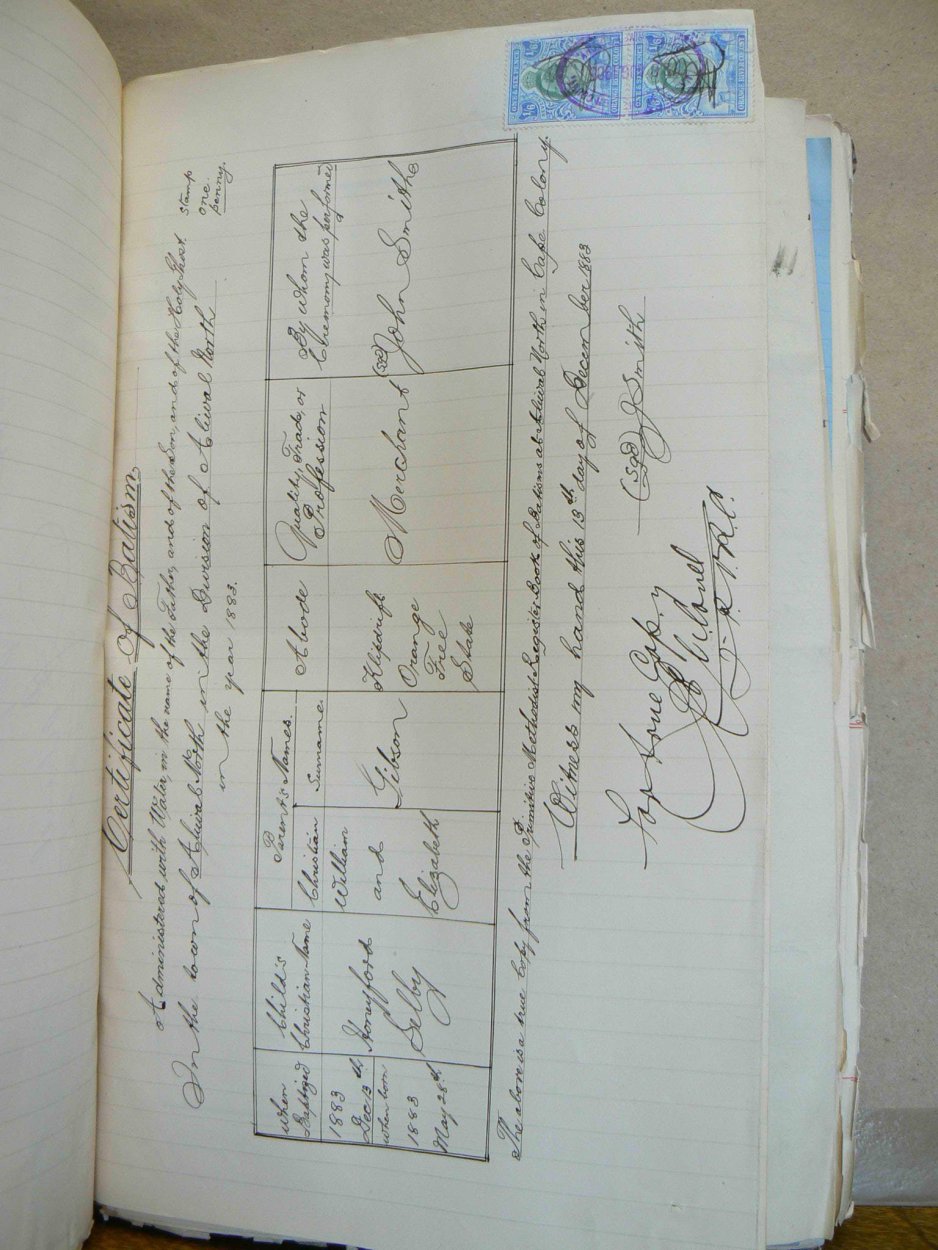 Certificate of Batism
Administered with Water, in the name of the Father, and of the Son, and of the Holy Ghost.
Stamp
One
penny.
In the town of Aliwal North in the Division of Aliwal North
in the year 1883.
When
Baptized
Child's
Christian Name
Parents Names.
Christian
Surname.
Abode
Quality, Trade, or
Profession
By whom the
Ceremony was performed
1883
Dec 13th
when born
1883
May 28th
Honeyford
Selby
William
and
Elizabeth
Gibson
Klipdrift
Orange
Free
State
Merchant
(sd) John Smith
The above is a true Copy from the Primitive Methodist Register Book of Batisms at Aliwal North in Cape Colony.
Witness my hand this 13th day of December 1883
(sgd) J Smith
For true Copy